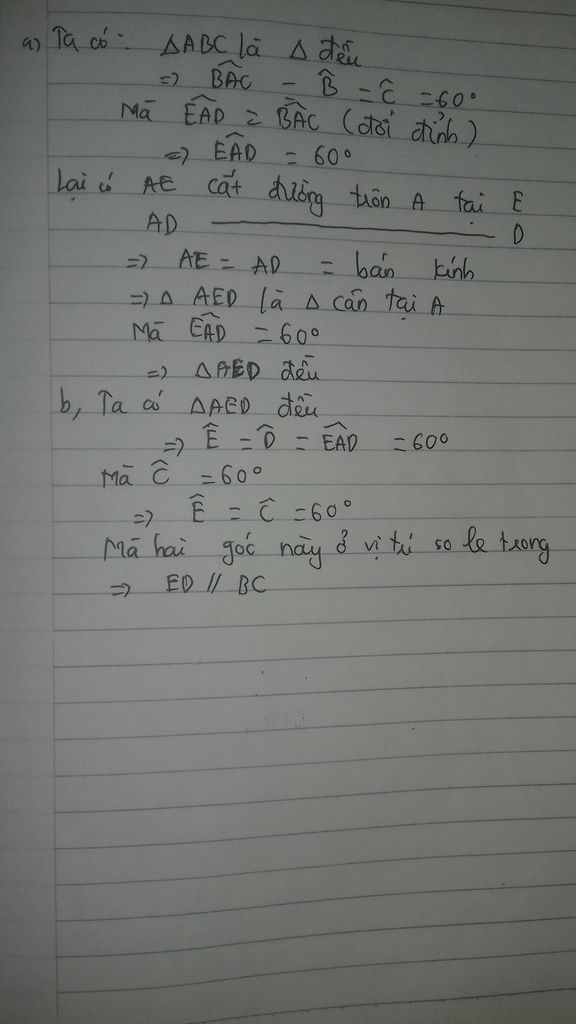 a) Ta có: ΔABC là Δ đều
=> B̂AC = B̂ = Ĉ = 60°
Mà ÊAD = B̂AC (đối đỉnh)
=> ÊAD = 60°
Lại có AE cắt đường tròn A tại E
AD ———————— D
=> AE = AD = bán kính
=> Δ AED là Δ cân tại A
Mà ÊAD = 60°
=> ΔAED đều
b, Ta có ΔAED đều
=> Ê = D̂ = ÊAD = 60°
Mà Ĉ = 60°
=> Ê = Ĉ = 60°
Mà hai góc này ở vị trí so le trong
=> ED // BC